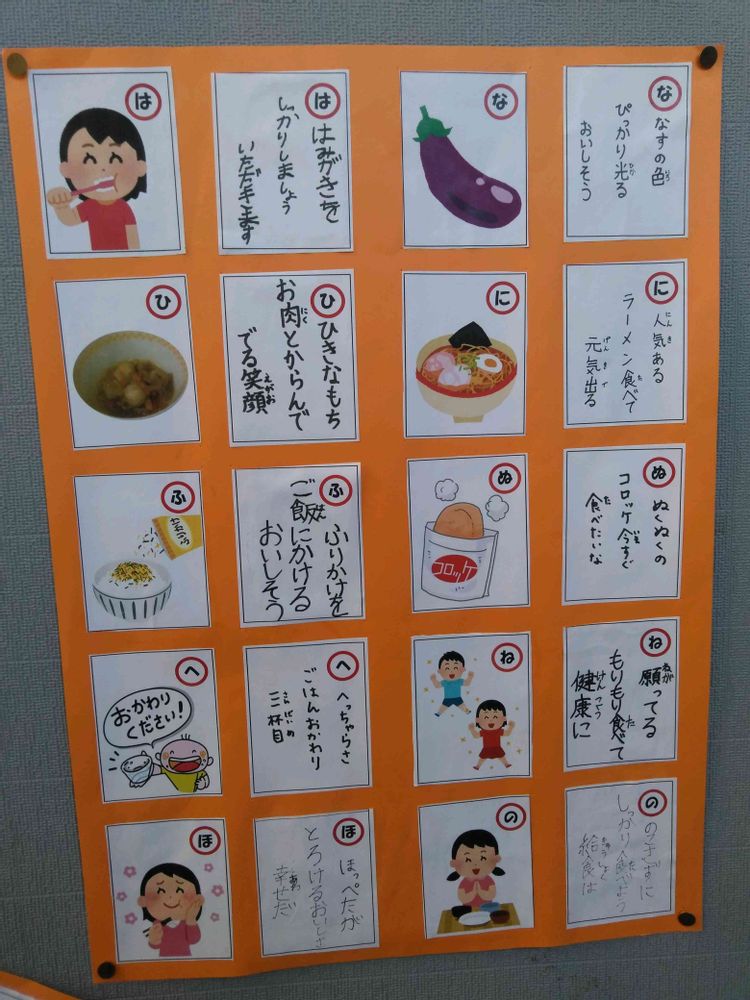 な
なすの色
いろ
ぴっかり光る
ひか
おいしそう
な
に
人気ある
にんき
ラーメン食べて
た
元気出る
げんきで
に
ぬ
ぬくぬくの
コロッケ今すぐ
食べたいな
た
ぬ
コロッケ
ね
願ってる
ねが
もりもり食べて
た
健康に
けんこう
ね
の
のこさずに
しっかり食べよう
た
給食は
きゅうしょく
の
は
はみがきを
しっかりしましょう
いただきます
は
ひ
ひきなもち
お肉とからんで
にく
でる笑顔
えがお
ひ
ふ
ふりかけを
ご飯にかける
はん
おいしそう
ふ
へ
へっちゃらさ
ごはんおかわり
三杯目
へ
おかわり
ください!
ほ
ほっぺたが
とろけるおいしさ
幸せだ
ほ